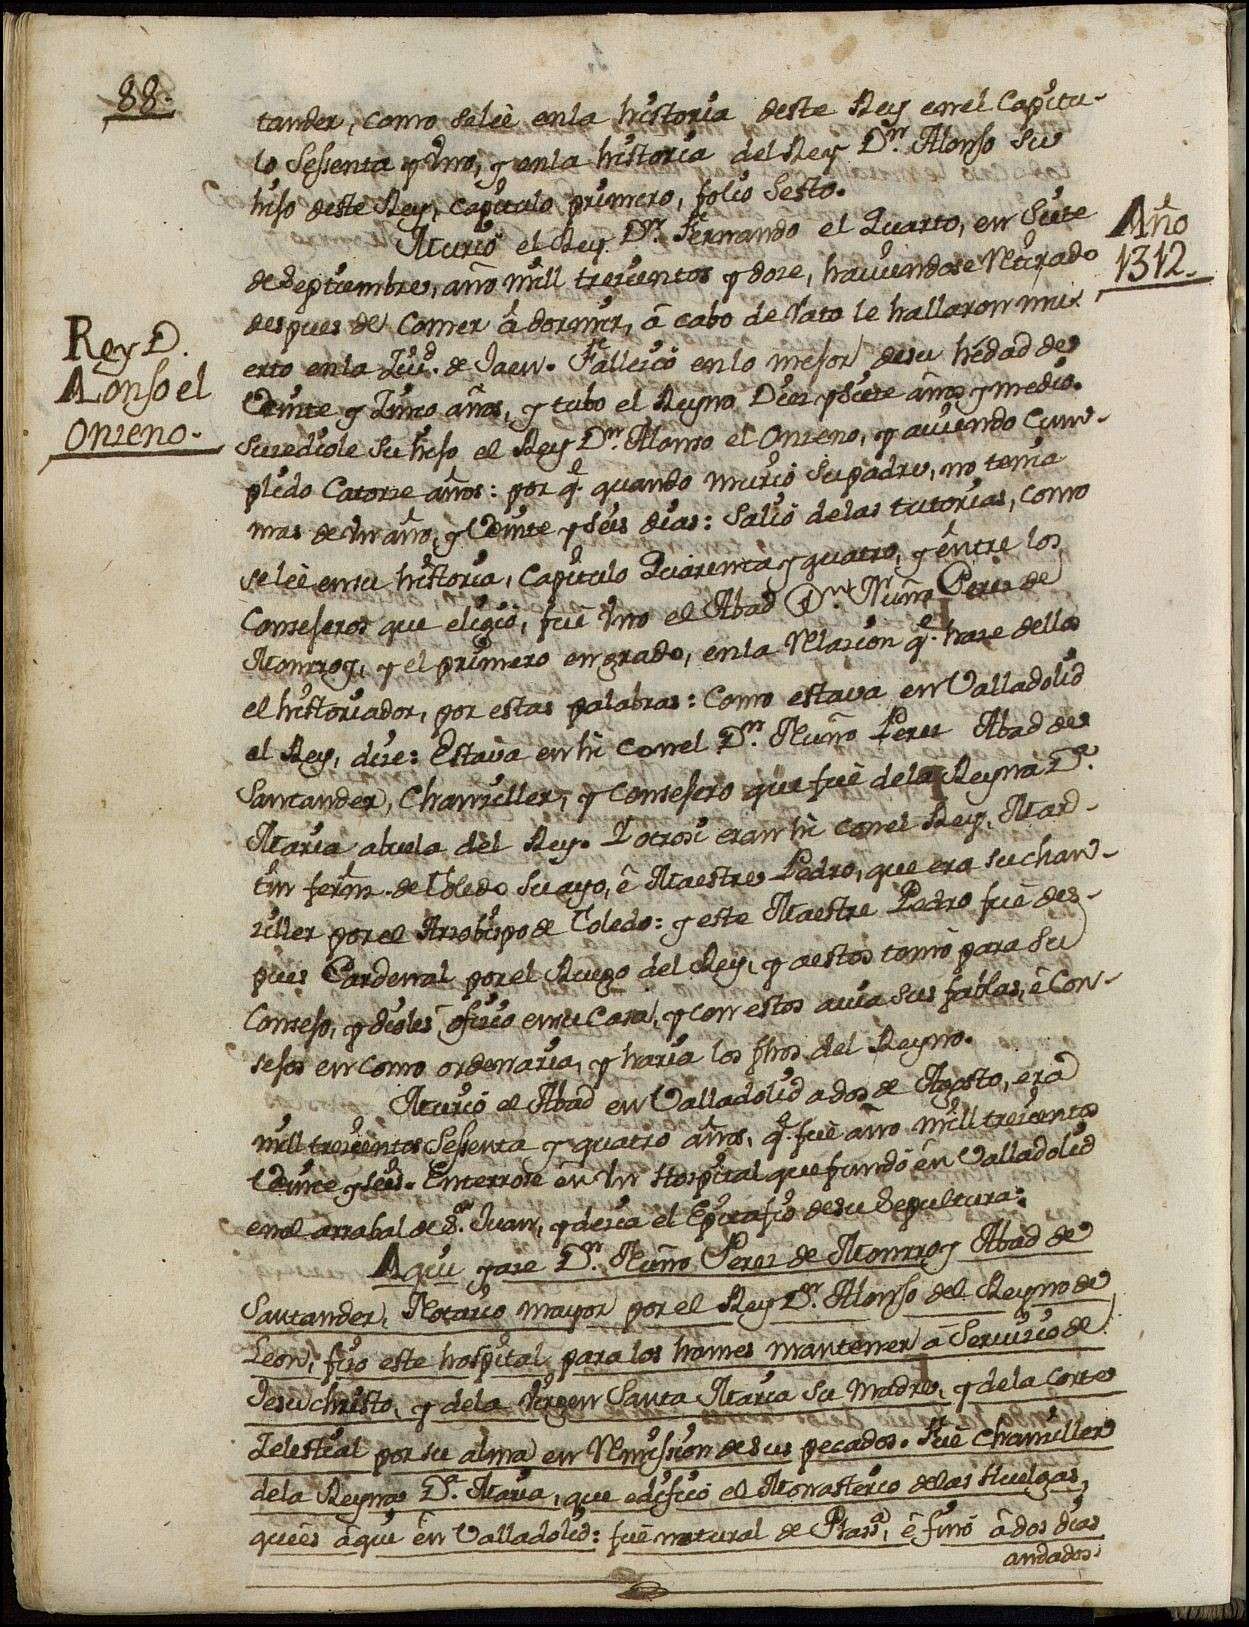 88.
tander, como se leè en la historia deste Rey en el Capitu-
lo Sesenta y Vno, y en la historia del Rey Dn. Alonso su
hijo deste Rey, capitulo primero, folio Sesto.
Murió el Rey Dn. Fernando el Quarto, en Siete
de Septiembre, año mill trecientos y doze, haviendose Retirado
Año
1312.
despues de Comer â dormir, â cabo de rato le hallaron mu-
erto en la Ziud. de Jaen. Falleció en lo mejor de su hedad de
Rey D.
ALonso el
Onzeno.
Veinte y Zinco años, y tubo el Reyno Diez y Siete años y medio.
Succediole Su hijo el Rey Dn. Alonso el Onzeno, y aviendo Cum-
plido Catorze años: por q. quando murió su padre, no tenia
mas de Vn año, y Veinte y seis dias: Salió de las tutorias, como
se leè en su historia, Capitulo Quarenta y quatro, y êntre los
Consejeros que eligió, fuè Vno el Abad Dn. Nuño Perez de
Monrroy, y el primero en grado, en la Relazion q. haze dellos
el historiador, por estas palabras: Como estava en Valladolid
el Rey, dize: Estava en hi con el Dn. Nuño Perez Abad de
Santander, Chanziller, y Consejero que fuè de la Reyna Da.
Maria abuela del Rey. Y otrosi eran hi con el Rey, Mar-
tin fernz. de Toledo Su ayo, ê Maestre Pedro, que era su chan-
ziller por el Arzobispo de Toledo: y este Maestre Pedro fuè des-
pues Cardenal por el Ruego del Rey, y a estos tomó para Su
Consejo, y dioles ofizio en su Casa, y con estos avia sus fablas, ê Con-
sejos en como ordenaria, y haria los fhos. del Reyno.
Murió el Abad en Valladolid a dos de Agosto, era
mill trecientos Sesenta y quatro años, q. fuè año mill trecientos
Veinte y seis. Enterrose en Vn Hospital que fundó en Valladolid
en el arrabal de Sn. Juan, y dezia el Epitafio de su Sepultura:
Aqui yaze Dn. Nuño Perez de Monrroy Abad de
Santander, Notario mayor por el Rey Dn. Alonso del Reyno de
Leon, fizo este hospital para los homes mantener â Servizio de
Jesuchristo, y de la Virgen Santa Maria Su Madre, y de la Corte
Zelestial por su alma en Remision de sus pecados. Fuè Chanziller
de la Reyna Da. Maria, que edificó el Monasterio de las Huelgas,
que es âqui ên Valladolid: fuè natural de Plasa., ê finó â dos dias
andados